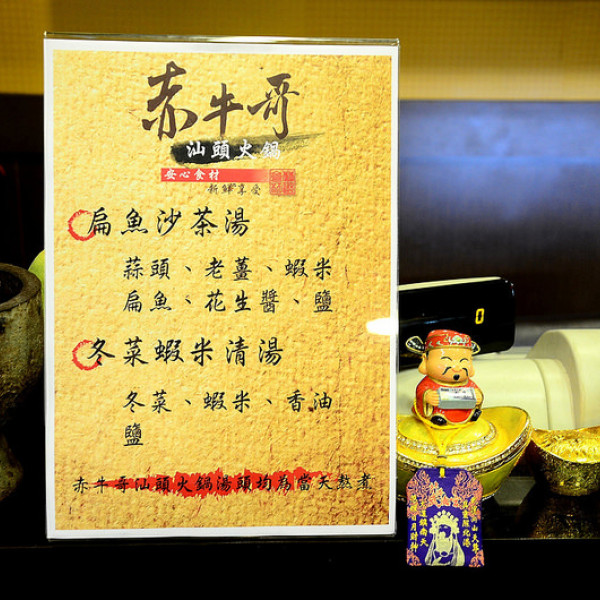 赤牛哥
汕頭火鍋
安心食材
新鮮享受
扁魚沙茶湯
蒜頭、老薑、蝦米
扁魚、花生醬、鹽
冬菜蝦米清湯
冬菜、蝦米、香油
鹽
赤牛哥汕頭火鍋湯頭均為當天熬煮
0